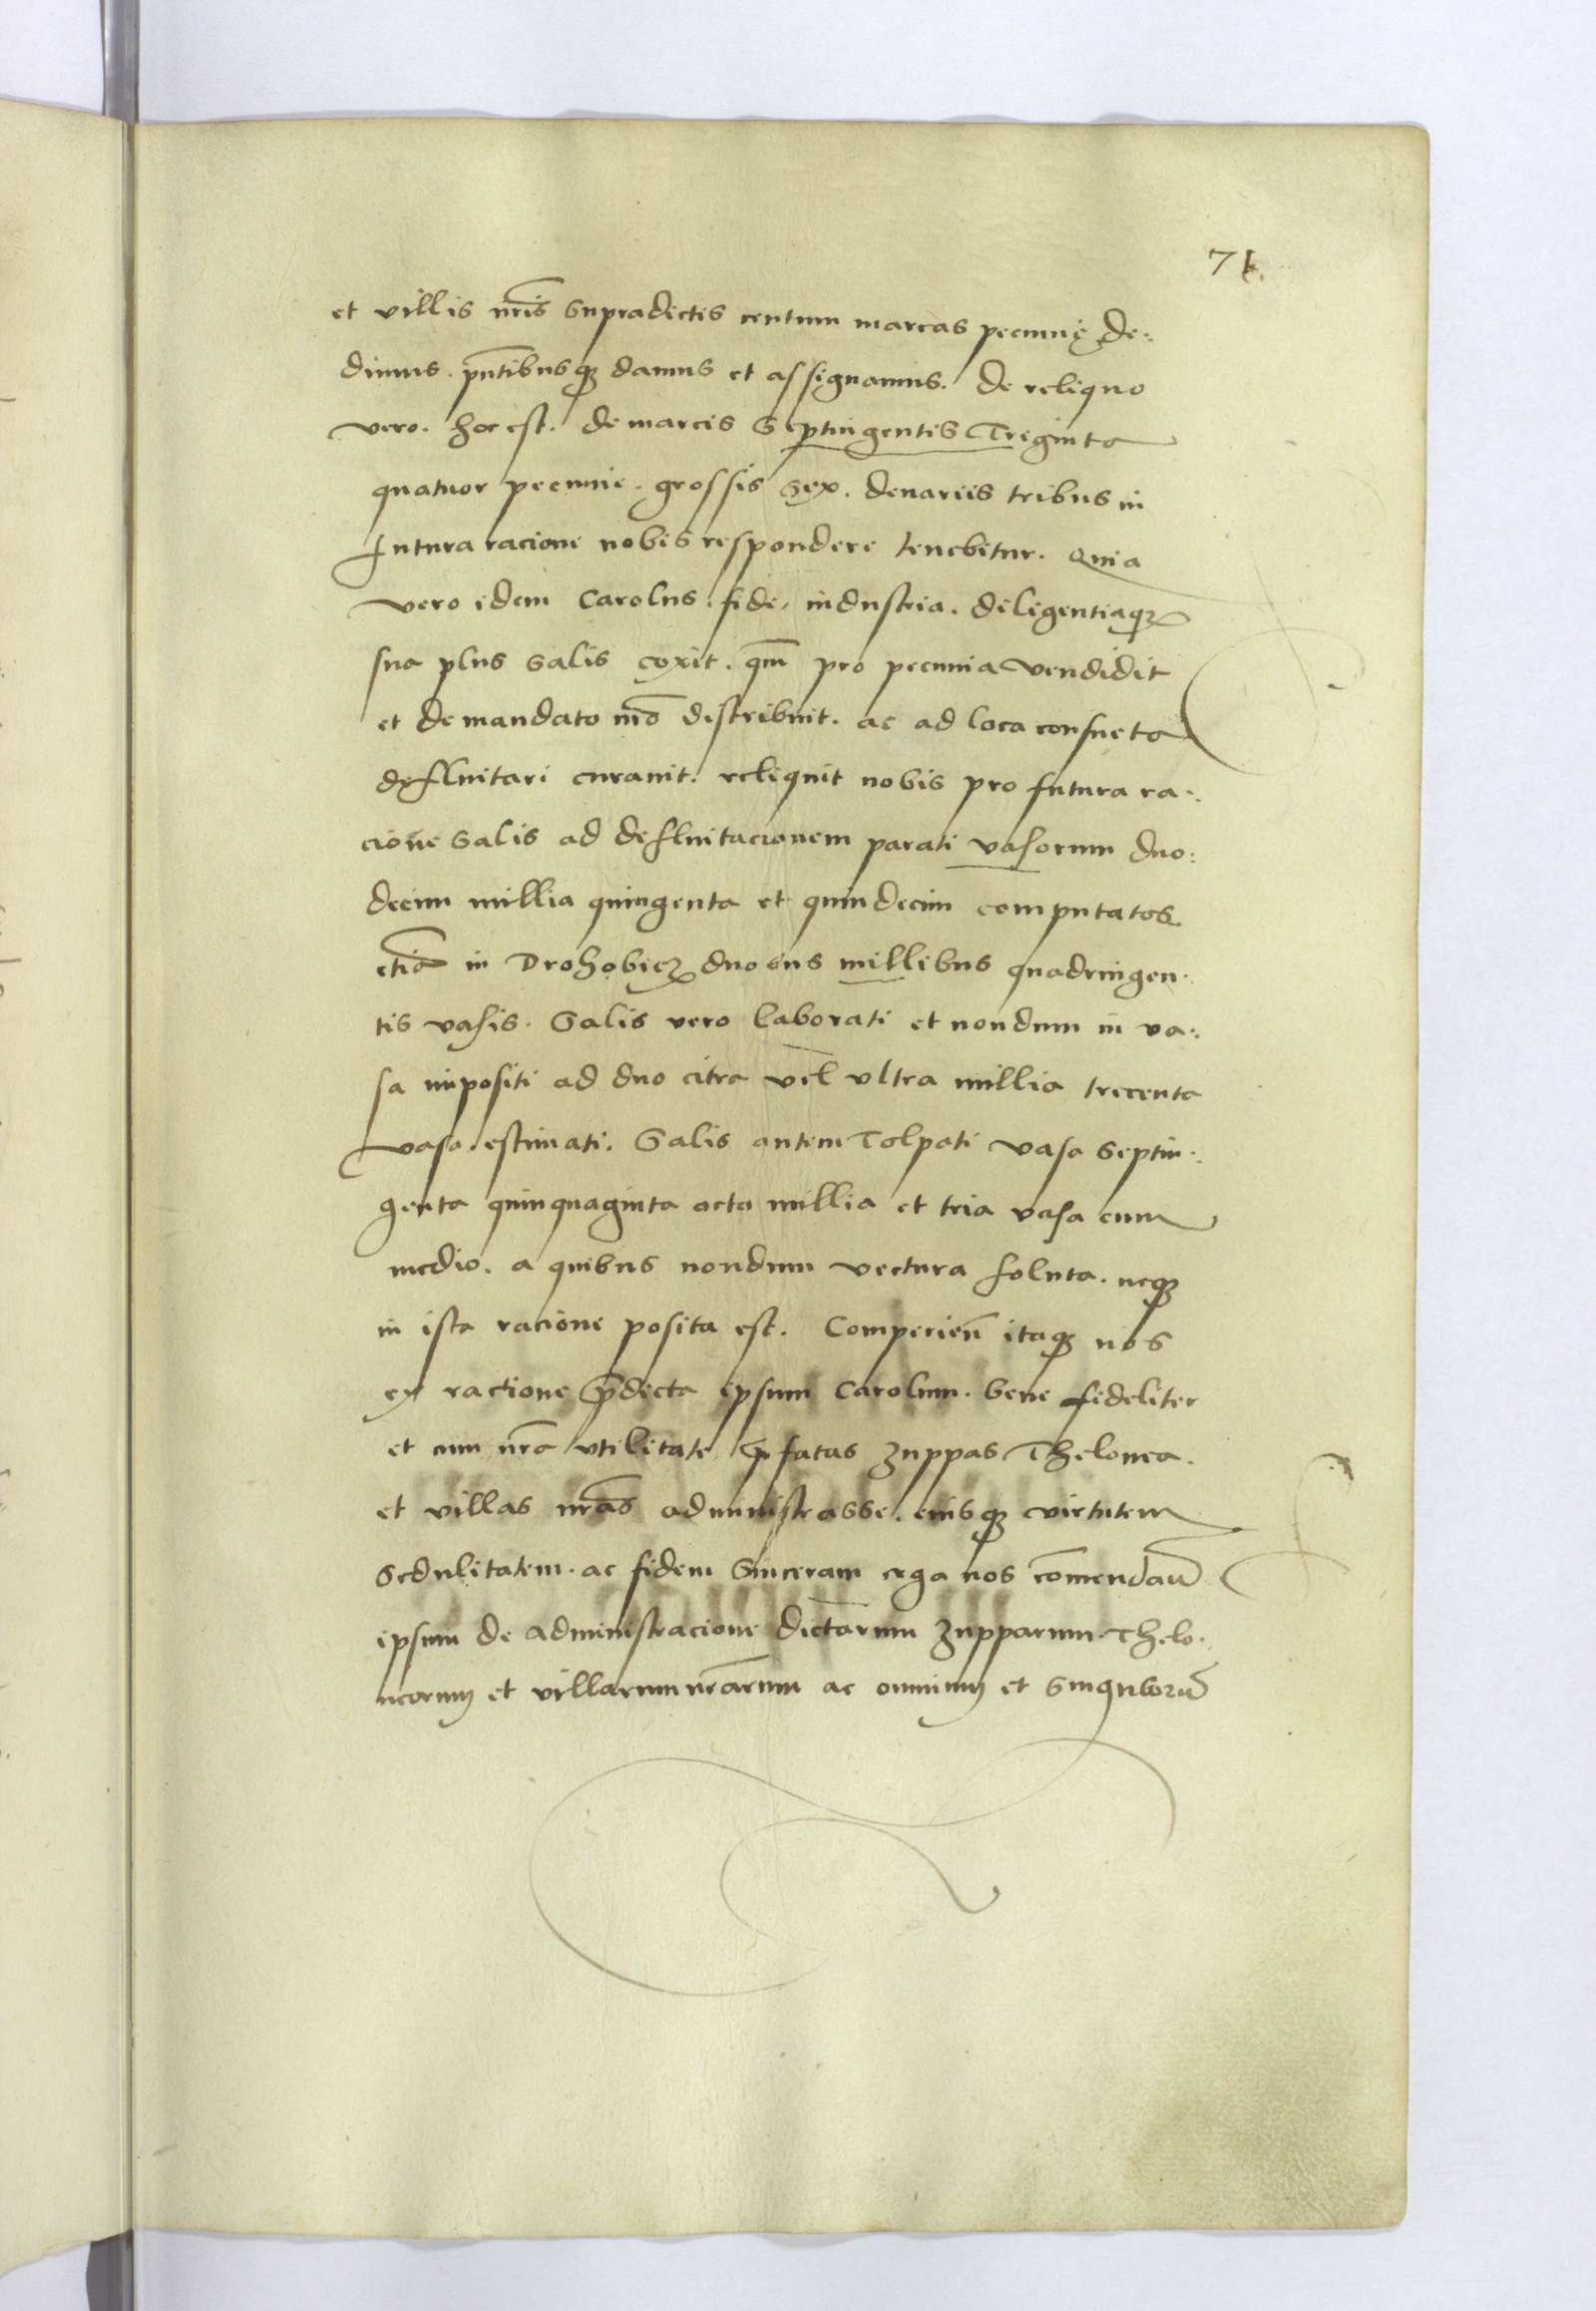 71.
et villis nr̃is supradictis centum marcas pecunię de:
dimus. pñtibusq₃ damus et assignamus. De reliquo
vero. hoc est. de marcis Septingentis Triginta
quatuor pecunie. grossis sex. denariis tribus in
futura racione nobis respondere tenebitur. Quia
vero idem Carolus. fide, industria. diligentiaq₃
sua plus salis coxit. qm̃ pro pecunia vendidit
et de mandato nr̃o distribuit. ac ad loca consueta
defluitari curauit. reliquit nobis pro futura ra:
cione Salis ad defluitacionem parati vasorum duo:
decim millia quingenta et quindecim computatos
etiã in Drohobicz duobus millibus quadringen:
tis vasis. Salis vero laborati et nondum in va:
sa impositi ad duo citra vel vltra millia trecenta
vasa. estimati. Salis autem Tolpati vasa Septin:
genta quinquaginta octo millia et tria vasa cum
medio. a quibus nondum vectura soluta. neq₃
in ista racione posita est. Comperieñ itaq₃ nos
ex ractione p̃dicta ipsum Carolum. bene fideliter
et cum nr̃a vtilitate p̃fatas zuppas Thelonea.
et villas nr̃as administrasse. eiusq₃ virtutem
sedulitatem. ac fidem sinceram erga nos com̃endañ
ipsum de administracione dictarum zupparum Thelo:
neorum et villarum nr̃arum ac omnium et singulorũ